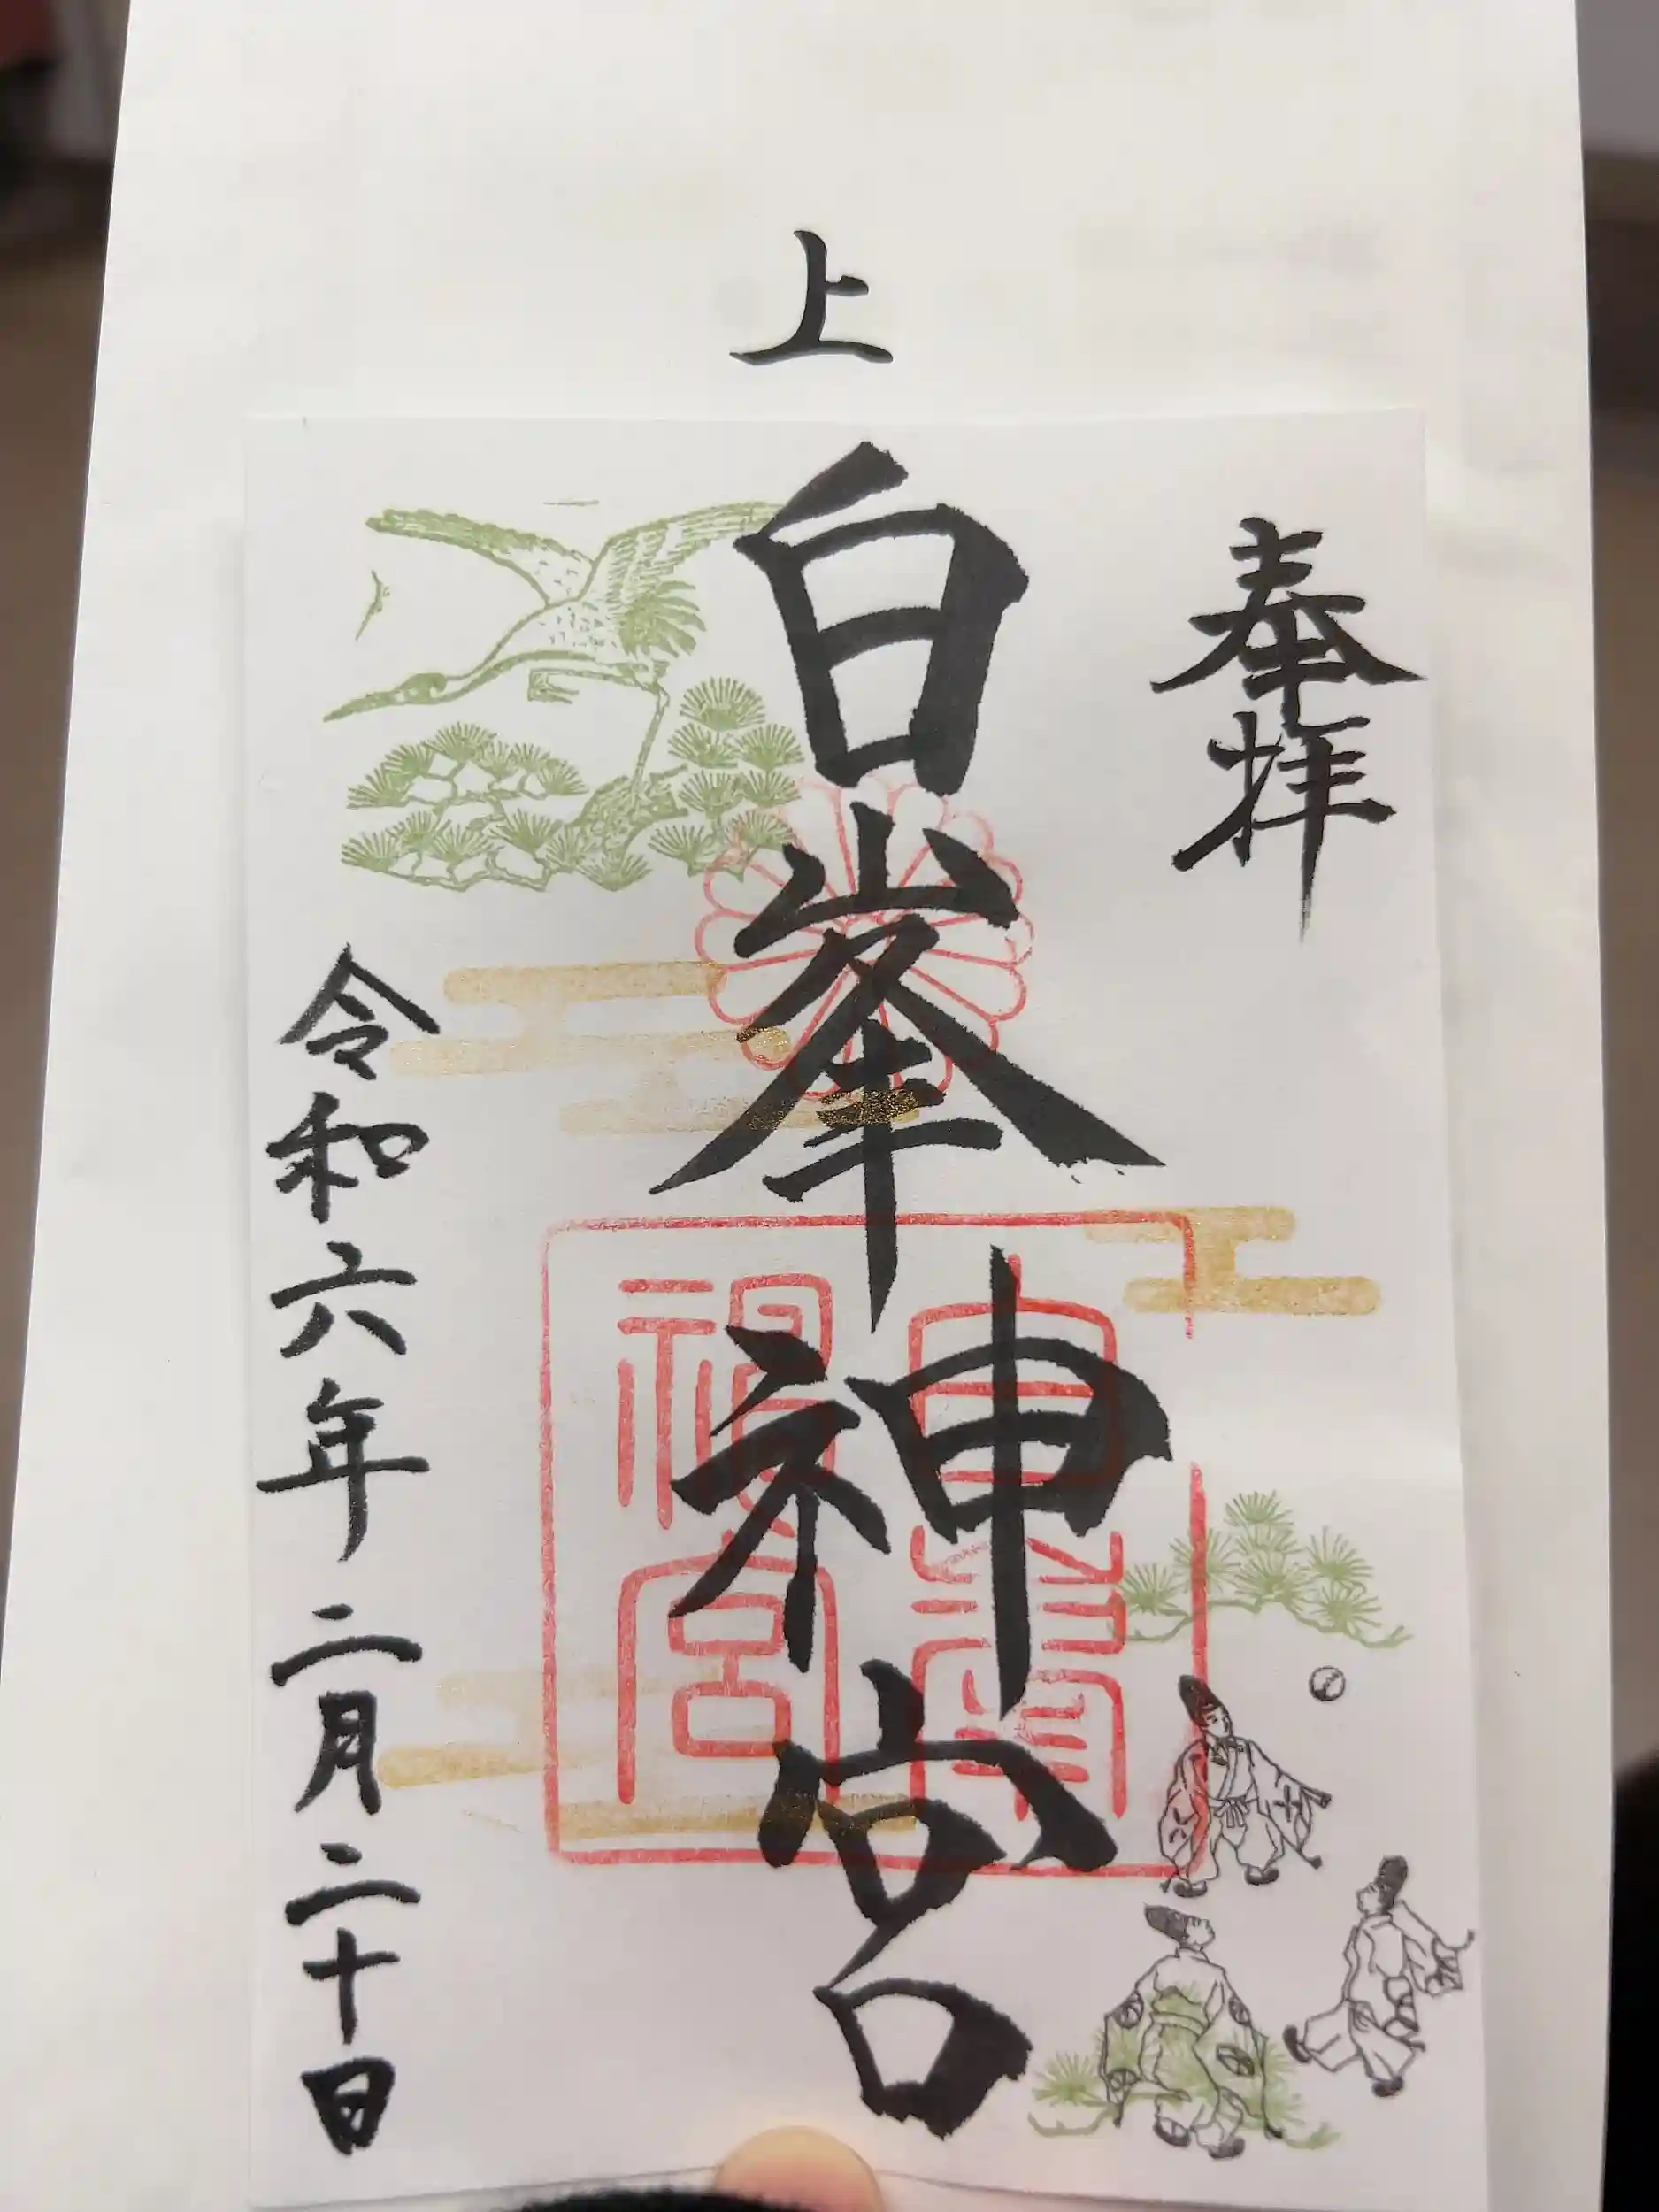 上
奉拝
白峯神宮
令和六年二月二十日